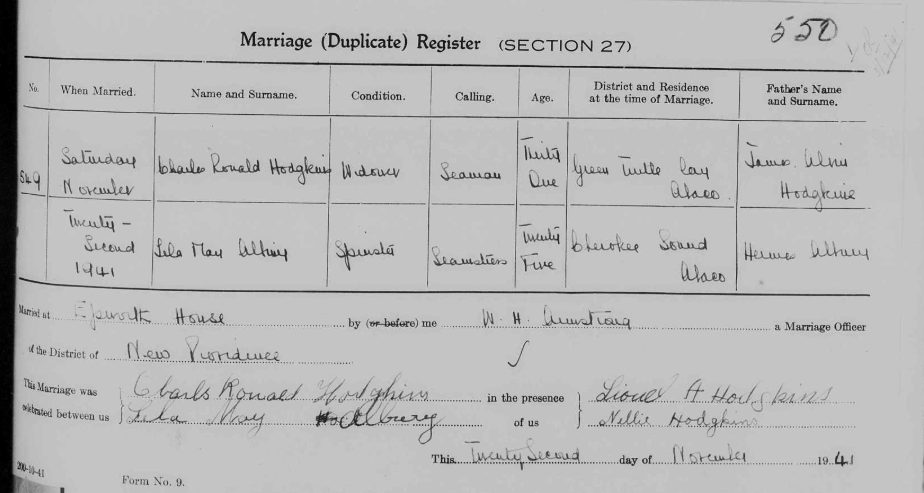 550
Marriage (Duplicate) Register (SECTION 27)
No. When Married. Name and Surname. Condition. Calling. Age. District and Residence at the time of Marriage. Father's Name and Surname.
549 Saturday November Twenty - Second 1941
Charles Ronald Hodgkins Widower Seaman Thirty One Green Turtle Cay Abaco. James Hodgkins
Lela May Albury Spinster Seamstress Twenty Five Cherokee Sound Abaco Albury
Married at Epworth House by (or before) me W. H. Armstrong a Marriage Officer
of the District of New Providence
This Marriage was Charls Ronald Hodgkins in the presence Lionel A Hodgkins
celebrated between us Lela May Albury of us Nellie Hodgkins
This Twenty Second day of November 1941
200-10-41
Form No. 9.